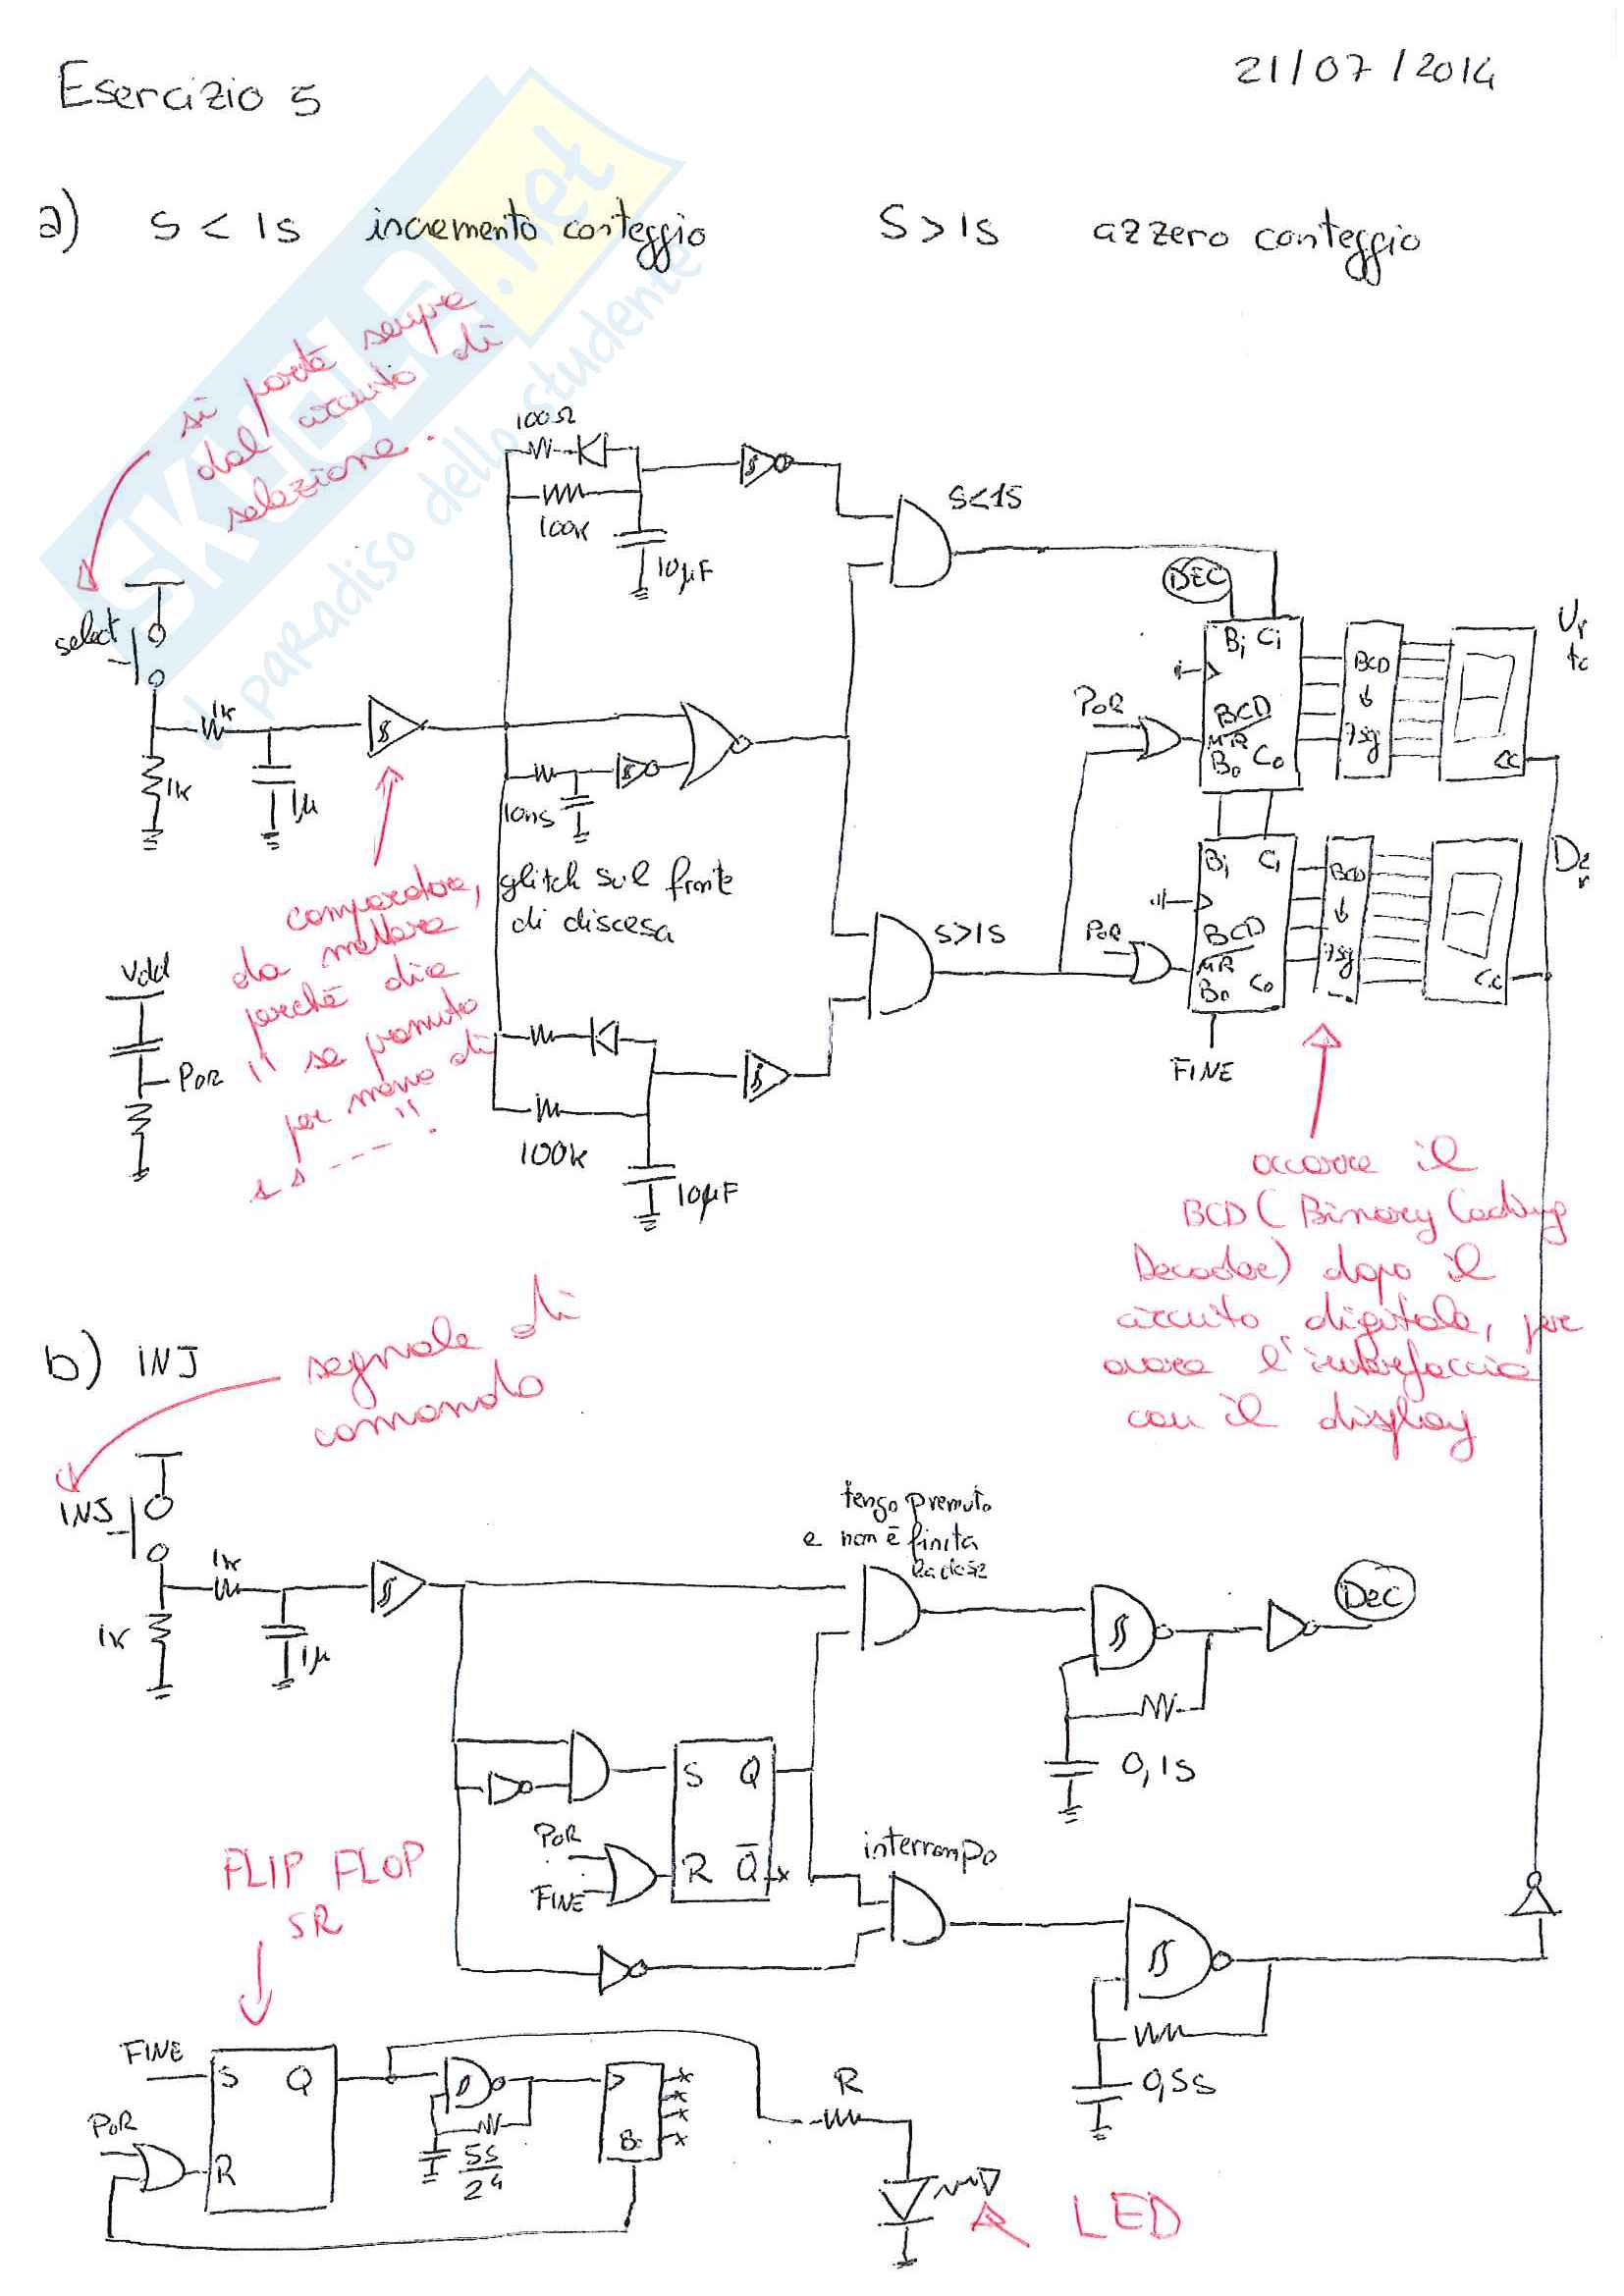 21/07/2014
Esercizio 5
a) S < 1s incremento conteggio S > 1s azzero conteggio
SKUOLA.net
il paradiso dello studente
si parte sempre
dal circuito di
selezione.
100Ω
100k
10µF
S<1s
DEC
select
1k
1k
1µ
10ns
glitch sul fronte
di discesa
POR
Bi Ci
BCD
MR
Bo Co
BCD
↓
7sg
CC
comparatore,
da mettere
perché dice
"se premuto
per meno di
1 s ---"!
Vdd
POR
S>1s
POR
Bi Ci
BCD
MR
Bo Co
BCD
↓
7sg
CC
FINE
100k
10µF
occorre il
BCD (Binary Coding
Decoder) dopo il
circuito digitale, per
avere l'interfaccia
con il display
b) INJ
segnale di
comando
INJ
1k
1k
1µ
tengo premuto
e non è finita
la dose
DEC
0,1s
S Q
R Q̅
POR
FINE
interrompo
0,5s
FLIP FLOP
SR
FINE
S Q
POR
R
5s
24
R
LED